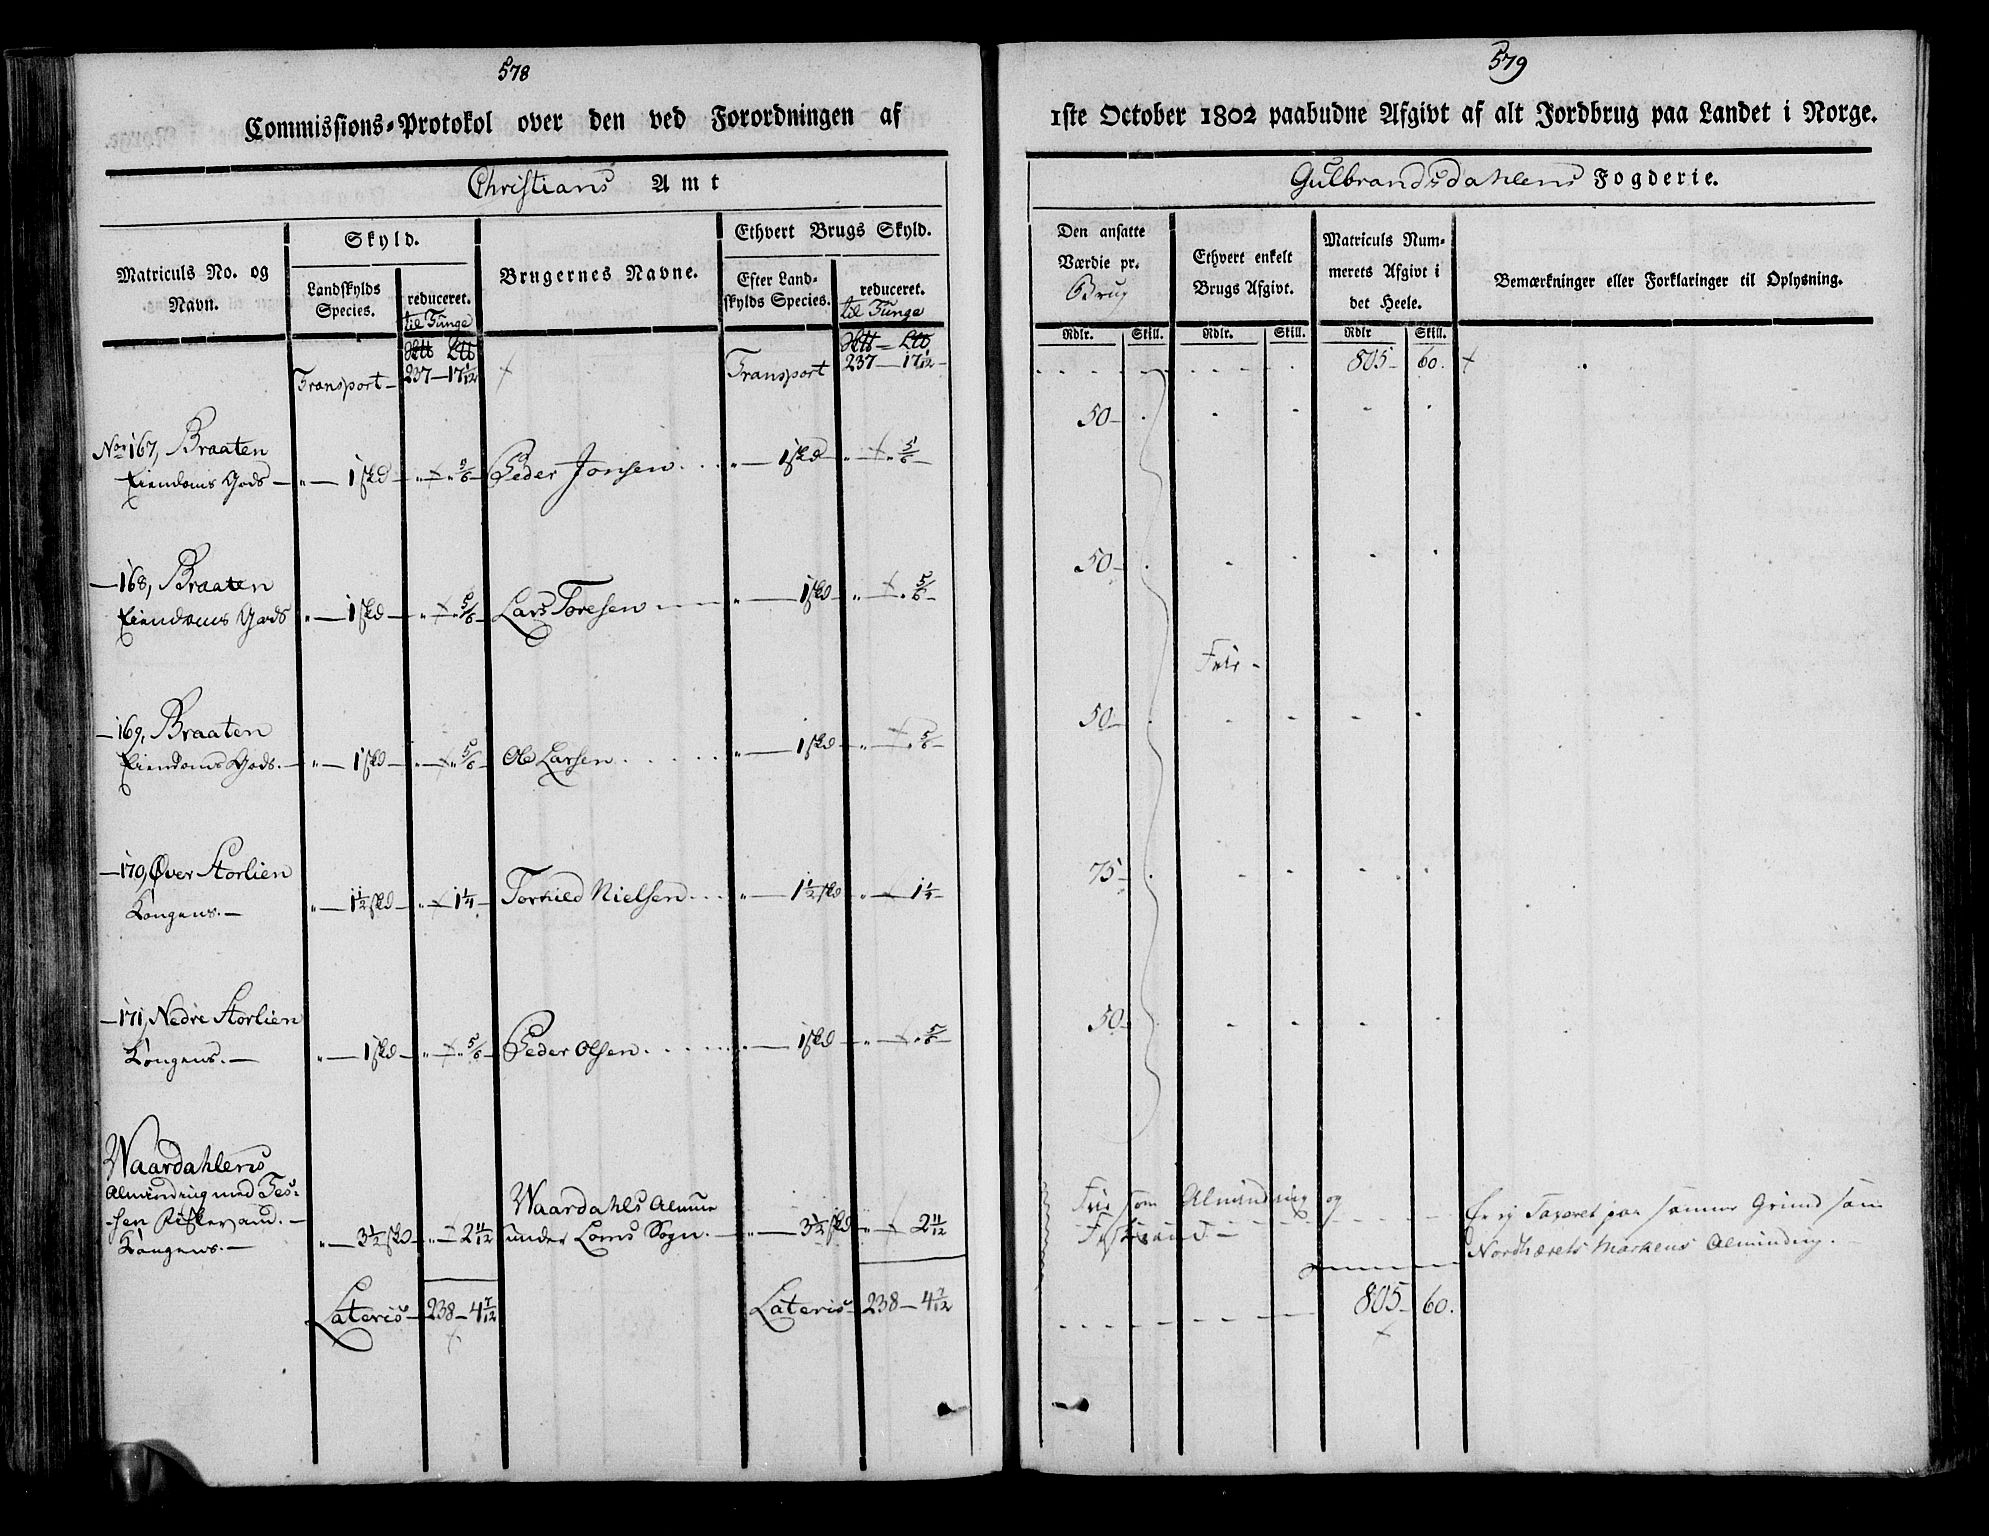 578
Commissions-Protokol over den ved Forordningen af
Christians Amt
Matriculs No. og Navn.
Skyld.
Landskylds Species.
reduceret. til Tunge
Brugernes Navne.
Ethvert Brugs Skyld.
Efter Landskylds Species.
reduceret. til Tunge
Transport 237 — 17 1/12 Transport 237 — 17 1/12
No 167, Braaten
Eiendoms Gods — 1 skd — 5/6 Peder Jonsen 1 skd — 5/6
168, Braaten
Eiendoms Gods — 1 skd — 5/6 Lars Toresen 1 skd — 5/6
169, Braaten
Eiendoms Gods — 1 skd — 5/6 Ole Larsen 1 skd — 5/6
170, Øver Storlien
Kongens — 1 1/2 skd — 1 1/4 Torkild Nielsen 1 1/2 skd — 1 1/4
171, Nedre Storlien
Kongens — 1 skd — 5/6 Peder Olsen 1 skd — 5/6
Waardahlens
Almindning med Tes-
sen Fiskevand Waardahls Almue
Kongens — 3 1/2 skd — 2 11/12 under Loms Sogn 3 1/2 skd — 2 11/12
Lateris 238 — 4 7/12 Lateris 238 — 4 7/12
579
1ste October 1802 paabudne Afgivt af alt Jordbrug paa Landet i Norge.
Gulbrandsdahlens Fogderie.
Den ansatte Værdie pr. Brug
Ethvert enkelt Brugs Afgivt.
Matriculs Nummerets Afgivt i det Heele.
Bemærkninger eller Forklaringer til Oplysning.
Rdlr. Skill. Rdlr. Skill. Rdlr Skill.
805 60
50
50
Frie
50
75
50
Frie som Almindning og
Fiskevand
Er ej Taxeret paa samme Grund som
Nordherets Markens Alminding.
805 60.